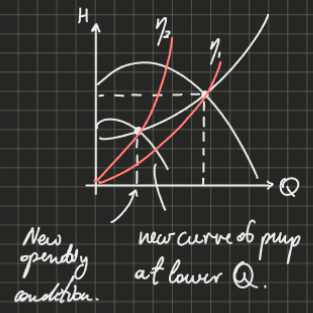 H
η₂
η₁
Q
New
operating
condition.
new curve of pump
at lower Q.